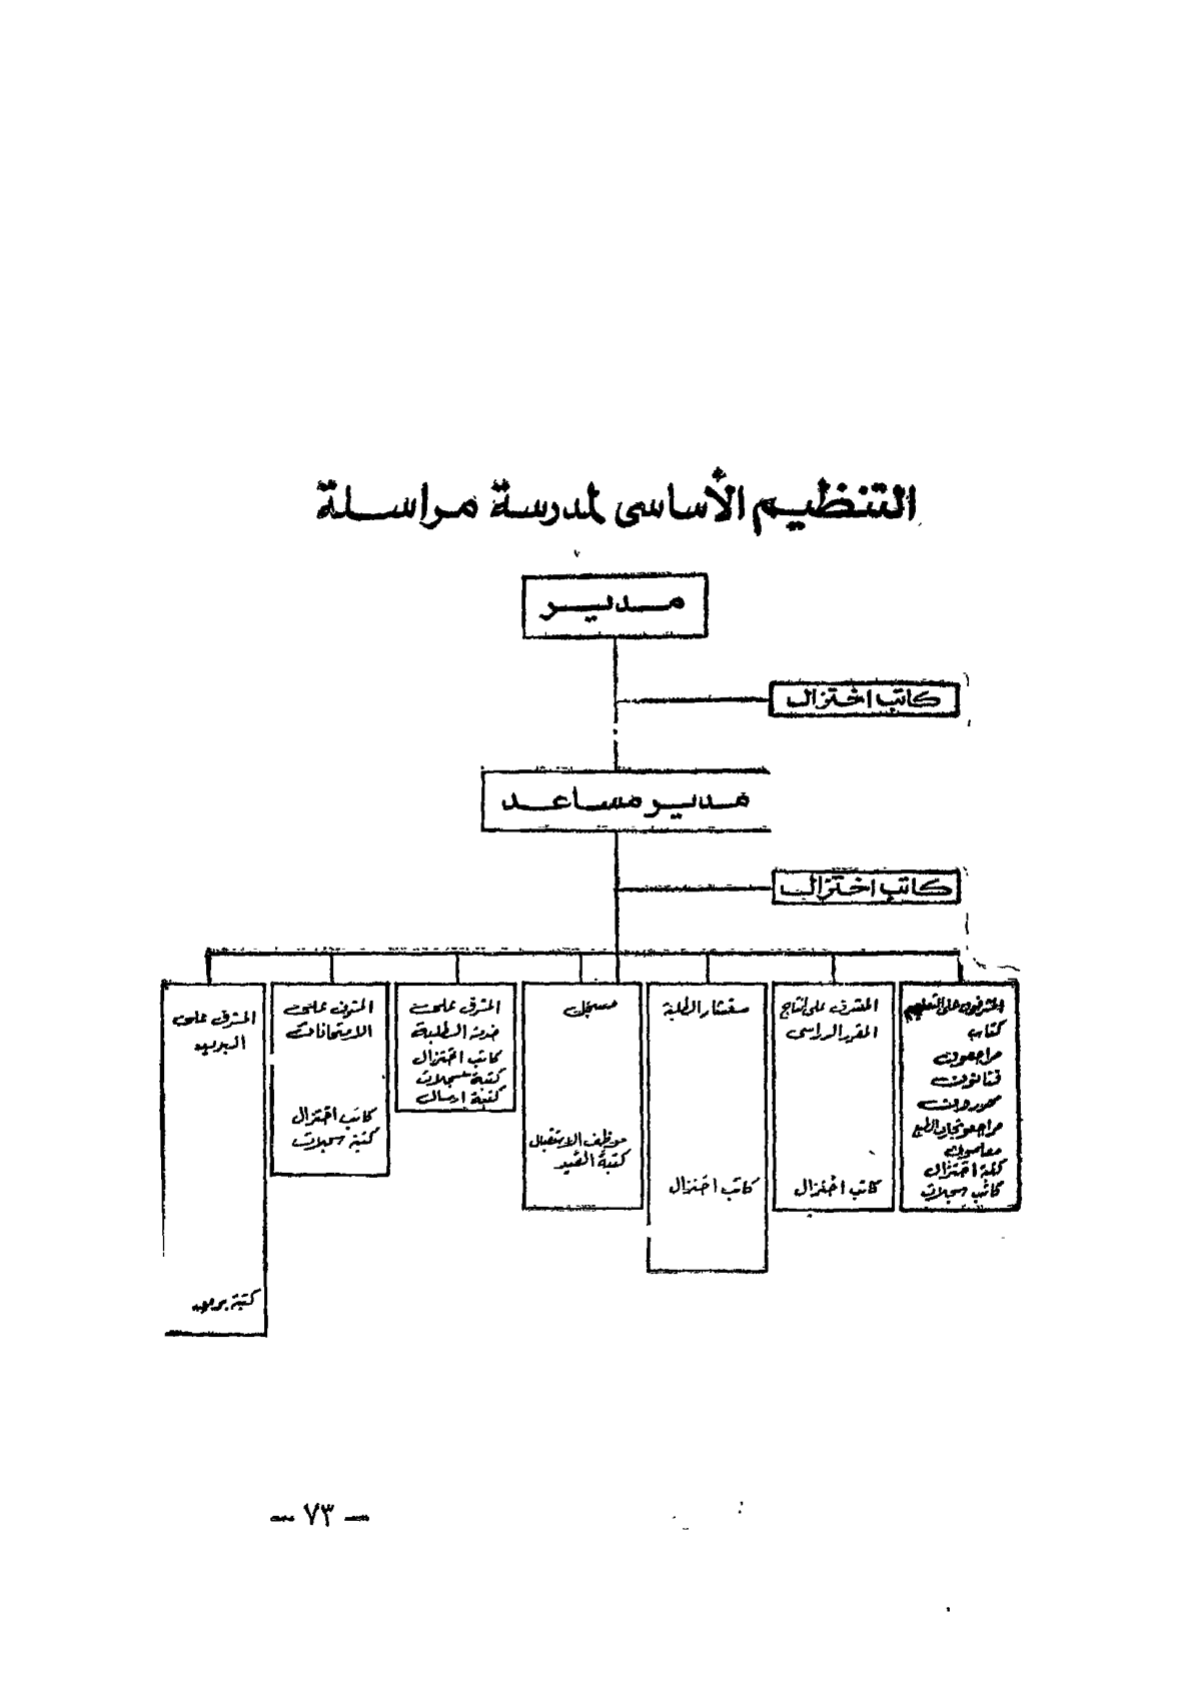 التنظيم الأساسى لمدرسة مراسلة
مدير
كاتب اختزال
مدير مساعد
كاتب اختزال
المشرفون على التعليم
كتاب
مراجعون
فنانون
محررون
مراجعو تجارب الطبع
كتبة اختزال
كاتب سجلات
المشرف على انتاج
المقرر الدراسى
كاتب اختزال
مستشار الطلبة
كاتب اختزال
مسجل
موظف الاستقبال
كتبة القيد
المشرف على
خدمة الطلبة
كاتب اختزال
كتبة سجلات
كتبة ارسال
المشرف على
الامتحانات
كاتب اختزال
كتبة سجلات
المشرف على
البريد
كتبة بريد
— ٧٣ —